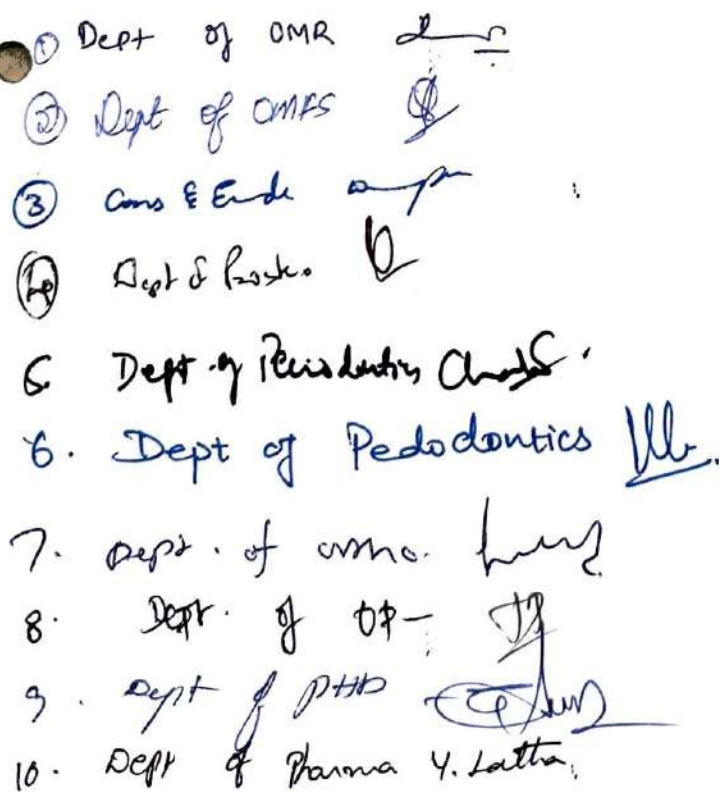 ① Dept of OMR
② Dept of OMFS
③ Cons & Endo
④ Dept of Prosto.
5. Dept of Periodontics
6. Dept of Pedodontics
7. Dept. of ortho.
8. Dept. of OP
9. Dept of PHD
10. Dept of Pharma Y. Latha